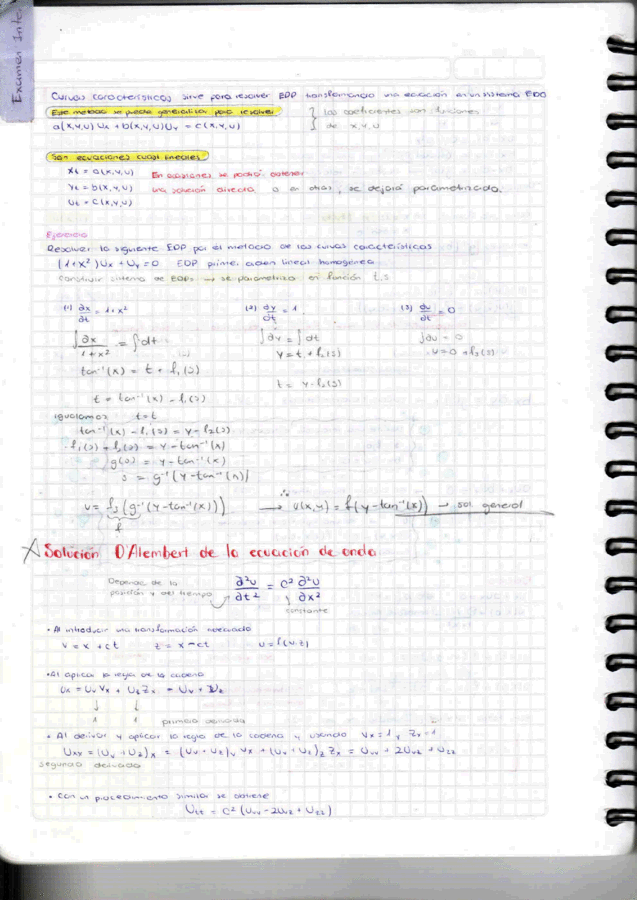 Examen Inte
Curvas características sirve para resolver EDP transformando una ecuación en un sistema EDO
Este metodo se puede generalizar para resolver } los coeficientes son funciones
a(x,y,u) Ux + b(x,y,u)Uy = c(x,y,u) de x,y,u
Son ecuaciones cuasi lineales
Xt = a(x,y,u) En ocasiones se podrá obtener
Yt = b(x,y,u) una solución directa, o en otras, se dejará parametrizada.
Ut = c(x,y,u)
Ejercicio
Resolver la siguiente EDP por el metodo de las curvas características
(1+x²)Ux + Uy = 0 EDP primer orden lineal homogénea
Construir sistema de EDOs → se parametriza en función t,s
(1) ∂x/∂t = 1+x² (2) ∂y/∂t = 1 (3) ∂u/∂t = 0
∫ ∂x/1+x² = ∫dt ∫dy = ∫dt ∫du = 0
y = t + f₂(s) u = 0 + f₃(s)
tan⁻¹(x) = t + f₁(s)
t = y - f₂(s)
t = tan⁻¹(x) - f₁(s)
igualamos t=t
tan⁻¹(x) - f₁(s) = y - f₂(s)
-f₁(s) + f₂(s) = y - tan⁻¹(x)
g(s) = y - tan⁻¹(x)
s = g⁻¹(y-tan⁻¹(x))
u = f₃(g⁻¹(y-tan⁻¹(x))) ∴ → u(x,y) = f(y-tan⁻¹(x)) → sol general
f
Solución D'Alembert de la ecuación de onda
Depende de la posición y del tiempo ∂²u/∂t² = c² ∂²u/∂x²
constante
• Al introducir una transformación adecuada
v = x + ct z = x - ct u = f(v,z)
• Al aplicar la regla de la cadena
Ux = Uv Vx + Uz Zx = Uv + Uz
↓ ↓
1 1 primera derivada
• Al derivar y aplicar la regla de la cadena y usando Vx=1 y Zx=1
Uxx = (Uv + Uz)x = (Uv + Uz)v Vx + (Uv + Uz)z Zx = Uvv + 2Uvz + Uzz
segunda derivada
• Con un procedimiento similar se obtiene
Utt = c² (Uvv - 2Uvz + Uzz)